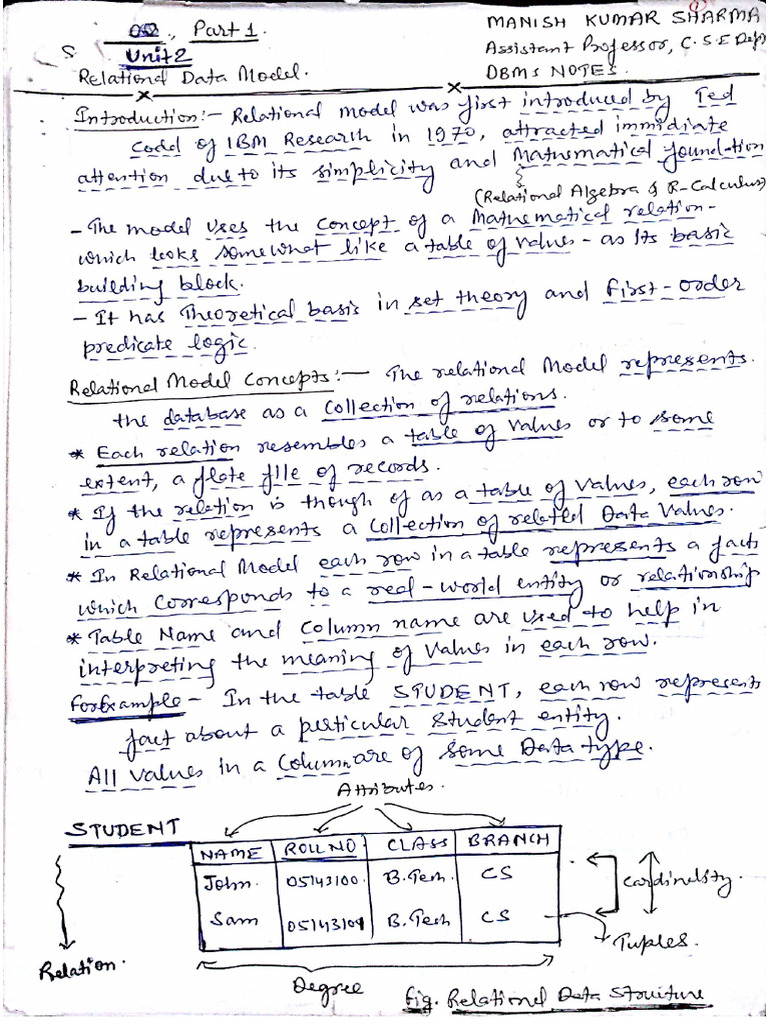 Part 1.
MANISH KUMAR SHARMA
Unit 2
Assistant Professor, C.S.E Dept
Relational Data Model.
DBMS NOTES.
Introduction:- Relational model was first introduced by Ted
Codd of IBM Research in 1970, attracted immidiate
attention due to its simplicity and Mathematical foundation
(Relational Algebra & R-Calculus)
- The model uses the concept of a Mathematical relation -
which looks somewhat like a table of values - as its basic
building block.
- It has Theoretical basis in set theory and first-order
predicate logic.
Relational Model Concepts:- The relational Model represents
the database as a Collection of relations.
* Each relation resembles a table of values or to some
extent, a flate file of records.
* If the relation is though of as a table of values, each row
in a table represents a Collection of related Data values.
* In Relational Model each row in a table represents a fact
which Corresponds to a real-world entity or relationship
* Table Name and Column name are used to help in
interpreting the meaning of values in each row.
For Example - In the table STUDENT, each row represents
fact about a perticular student entity.
All values in a Column are of some Data type.
Attributes.
STUDENT
NAME ROLL NO CLASS BRANCH
John. 05143100. B.Tech. CS
Sam 05143101 B.Tech CS
Cardinelity.
Tuples.
Relation.
Degree
Fig. Relational Data Struture